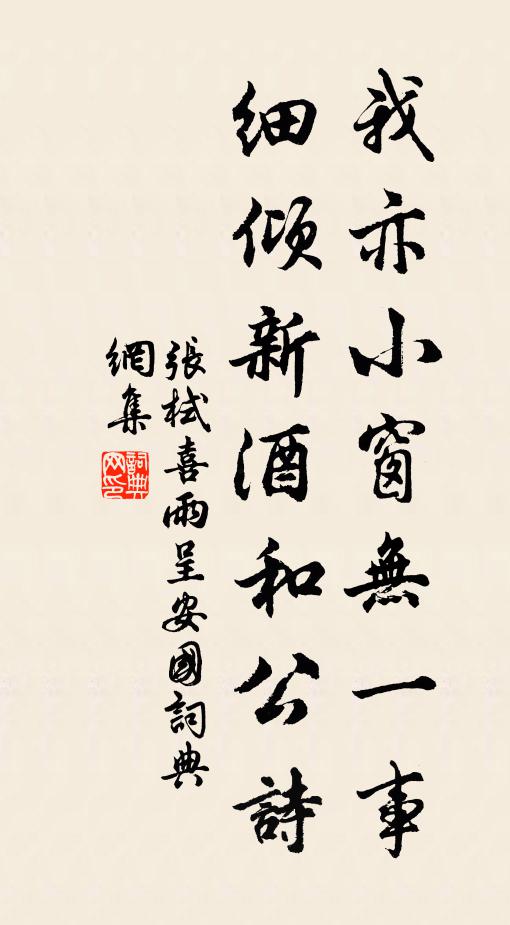 我亦小窗無一事
細傾新酒和公詩
張栻喜雨呈安國詞典
網集
詞典
网印